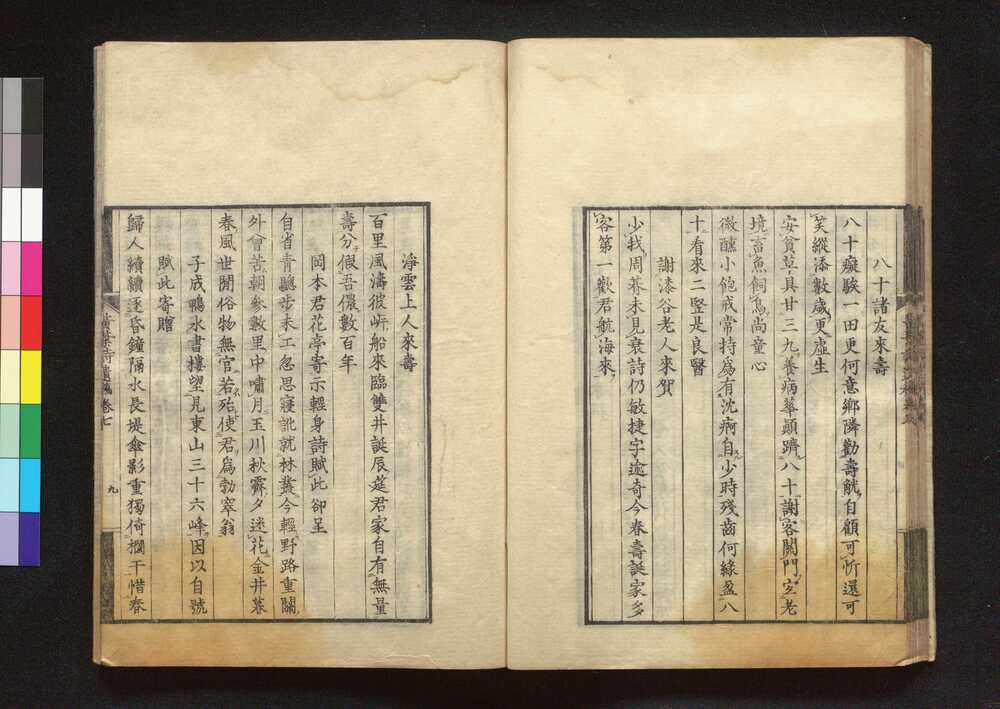 八十諸友來壽
八十癡騃一田更何意鄉隣勸壽觥自顧可忻還可
笑縱添數歲更虛生
安貧草具廿三九養病華顛躋八十謝客關門空老
境畜魚飼鳥尚童心
微醺小飽戒常持爲有沈痾自少時殘齒何緣盈八
十看來二竪是良醫
謝漆谷老人來賀
少我周葊未見衰詩仍敏捷字逾奇今春壽誕家多
客第一歡君航海來
淨雲上人來壽
百里風濤彼岍船來臨雙井誕辰筵君家自有無量
壽分假吾儂數百年
岡本君花亭寄示輕身詩賦此卻呈
自省青驄步未工忽思寢訛就林叢今輕野路重關
外曾苦朝參數里中嘯月玉川秋霽夕迷花金井暮
春風世閒俗物無官若殆使君爲勃窣翁
子成鴨水書樓望見東山三十六峰因以自號
賦此寄贈
歸人續續逐昏鐘隔水長堤傘影重獨倚欄干惜春
黃葉詩遺稿卷七
九